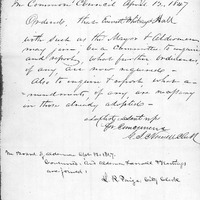 In Common Council April 12. 1847
Ordered, That Messrs
with such as the Mayor & Aldermen
may join, be a Committee to inquire
and report, what further ordinances
of any are now required -
Also to inquire & report what a-
mendments of any are necessary
in those already adopted -
adopted, & sent up
for concurrence
Clerk
In Board of Aldermen, Apl. 12. 1847.
Concurred: And Aldermen &
are joined:
City Clerk